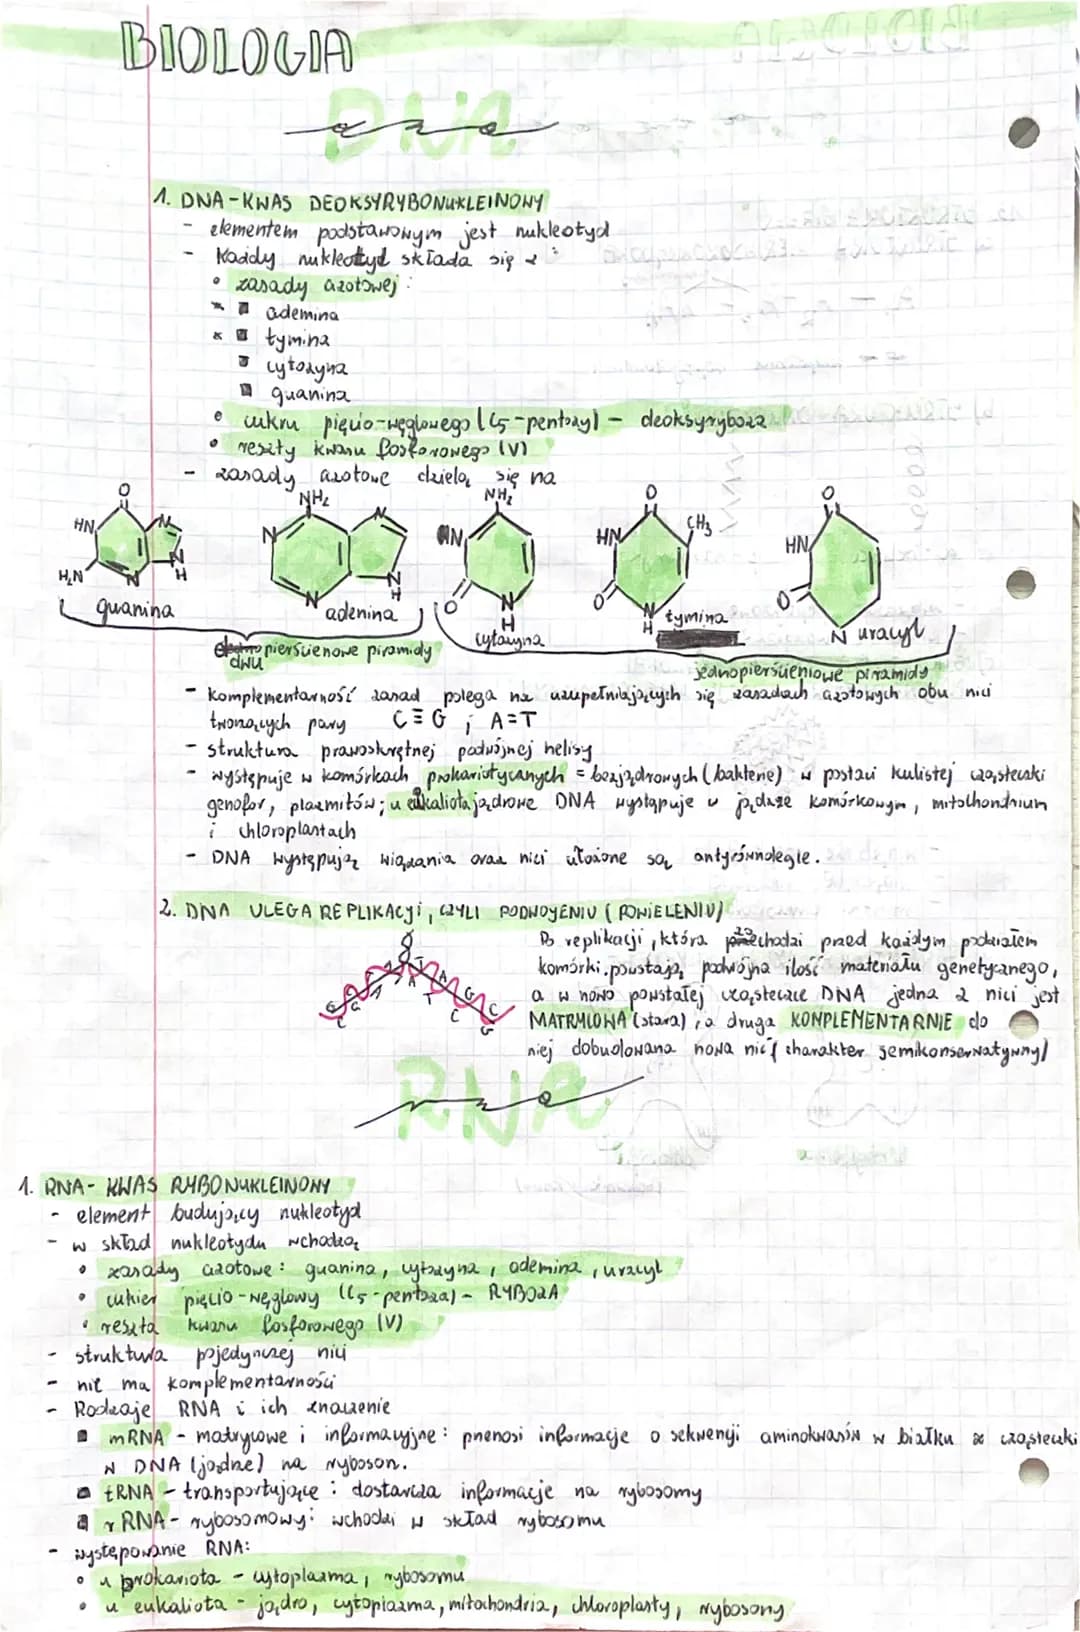 BIOLOGIA
DNA
1. DNA - KWAS DEOKSYRYBONUKLEINOWY
- elementem podstawowym jest nukleotyd
- Każdy nukleotyd składa się z :
• zasady azotowej :
ademina
tymina
cytozyna
guanina
• cukru pięcio-węglowego (C5-pentozy) - deoksyryboza
• reszty kwasu fosforowego (V)
- zasady azotowe dzielą się na
O NH2 NH2 O O
HN N N N N HN CH3 HN
H2N N N H N N H O N H O N H O N
guanina adenina cytozyna tymina uracyl
dwu pierścienowe piramidy
jednopierścieniowe piramidy
- komplementarność zasad polega na uzupełniających się zasadach azotowych obu nici
tworzących pary C≡G ; A=T
- struktura prawoskrętnej podwójnej helisy
- występuje w komórkach prokariotycznych = bezjądrowych (bakterie) w postaci kulistej cząsteczki
genofor, plazmitów; u eukaliota jądrowe DNA występuje w jądrze komórkowym, mitochondrium
i chloroplastach
- DNA występują wiązania oraz nici ułożone są antyrównolegle.
2. DNA ULEGA REPLIKACJI, CZYLI PODWOJENIU (POWIELENIU)
Po replikacji, która zachodzi przed każdym podziałem
komórki. powstają podwójna ilość materiału genetycznego,
a w nowo powstałej cząsteczce DNA jedna z nici jest
MATRYCOWA (stara), a druga KOMPLEMENTARNIE do
niej dobudowana nowa nić (charakter semikonserwatywny)
RNA
1. RNA - KWAS RYBONUKLEINOWY
- element budujący nukleotyd
- w skład nukleotydu wchodzą
• zasady azotowe : guanina, cytozyna, ademina, uracyl
• cukier pięcio-węglowy (C5-pentoza) - RYBOZA
• reszta kwasu fosforowego (V)
- struktura pojedynczej nici
- nie ma komplementarności
- Rodzaje RNA i ich znaczenie
mRNA - matrycowe i informacyjne : przenosi informacje o sekwencji aminokwasów w białku z cząsteczki
w DNA (jądrze) na ryboson.
tRNA - transportujące : dostarcza informacje na rybosomy
rRNA - rybosomowy : wchodzi w skład rybosomu
- występowanie RNA:
• u prokariota - cytoplazma, rybosomu
• u eukaliota - jądro, cytoplazma, mitochondria, chloroplasty, rybosony